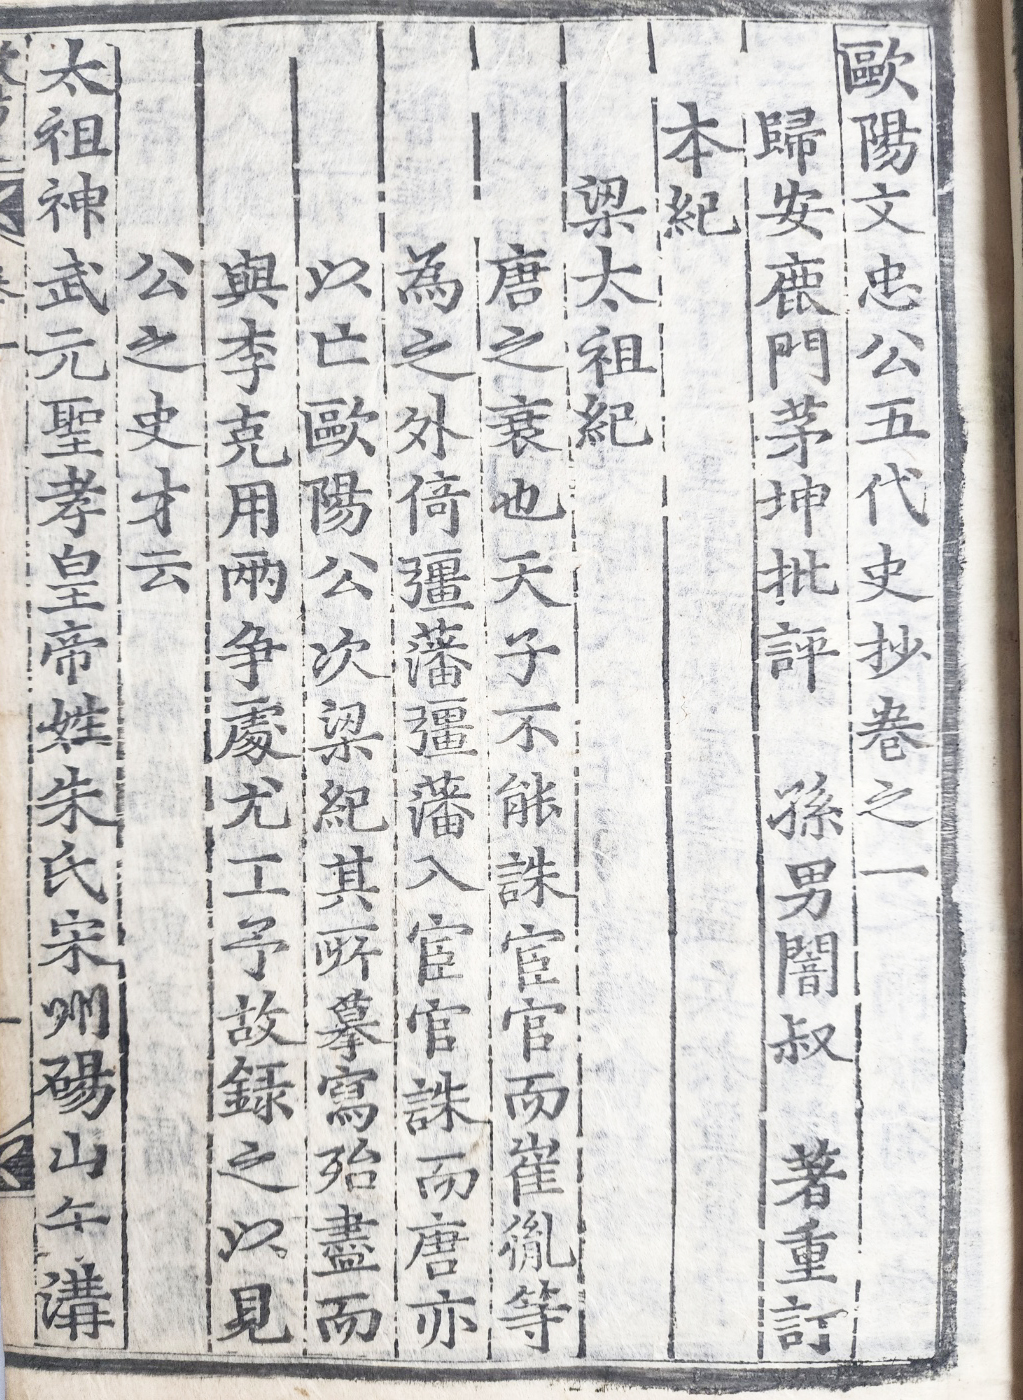 歐陽文忠公五代史抄卷之一
歸安鹿門茅坤批評 孫男闇叔 著重訂
本紀
梁太祖紀
唐之衰也天子不能誅宦官而崔胤等
為之外倚彊藩彊藩入宦官誅而唐亦
以亡歐陽公次梁紀其所摹寫殆盡而
與李克用兩争處尤工予故録之以見
公之史才云
太祖神武元聖孝皇帝姓朱氏宋州碭山午溝